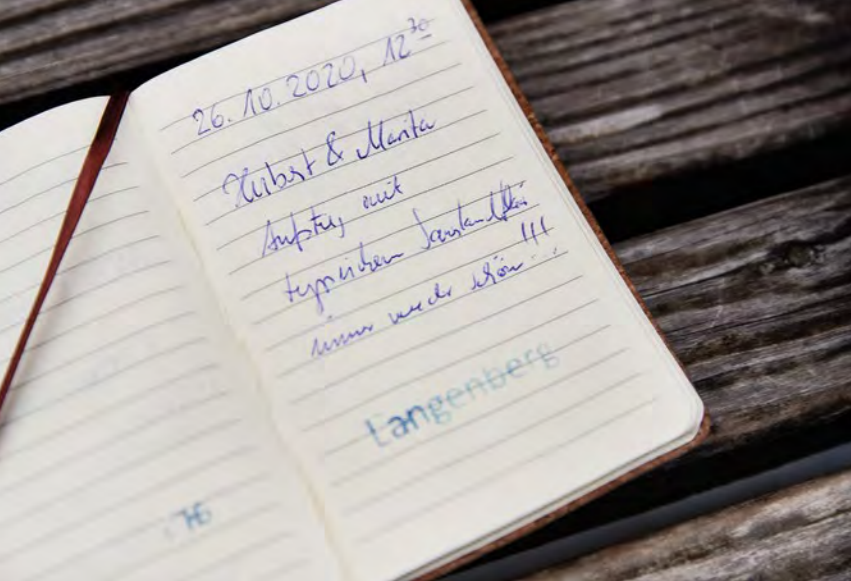 26.10.2020, 12³⁰
Hubert & Marita
Aufstieg mit
typischem
immer wieder schön!!!
Langenberg